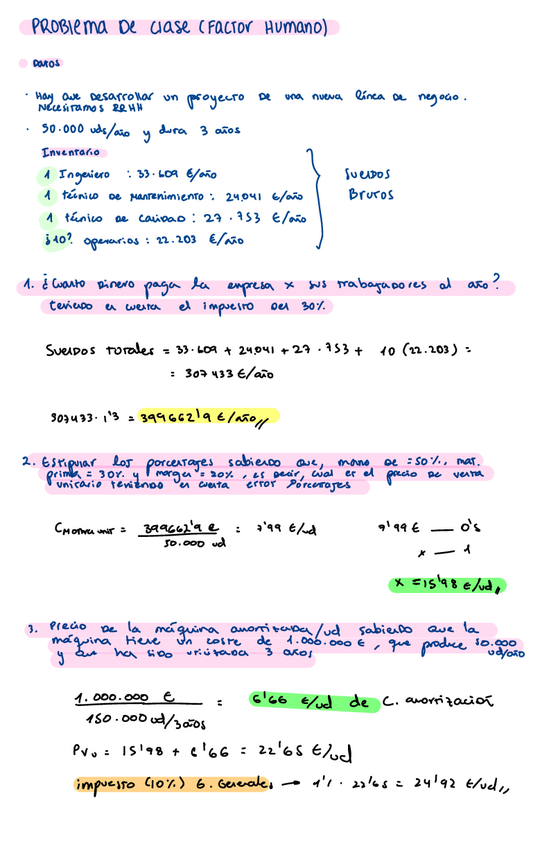 PROBLEMA DE Clase (FACTOR HUMANO)
DATOS
· Hay que desarrollar un proyecto de una nueva línea de negocio.
Necesitamos RRHH
· 50.000 uds/año y dura 3 años
Inventario
1 Ingeniero : 33.609 €/año
1 técnico de mantenimiento : 24,041 €/año
1 técnico de calidad : 27.753 €/año
¿10? operarios : 22.203 €/año
Sueldos
Brutos
1. ¿Cuanto dinero paga la empresa x sus trabajadores al año?
teniendo en cuenta el impuesto del 30%
Sueldos totales = 33.609 + 24,041 + 27.753 + 10 (22.203) =
= 307433 €/año
307433 · 1'3 = 399662'9 €/año,,
2. Estipular los porcentajes sabiendo que, mano de = 50%, mat.
prima = 30% y margen = 20%, es decir, cual es el precio de venta
unitario teniendo en cuenta estos porcentajes
= 399662'9 € / 50.000 ud = 7'99 €/ud
7'99 € — 0'5
x — 1
x = 15'98 €/ud,,
3. Precio de la máquina amortizada/ud sabiendo que la
máquina tiene un coste de 1.000.000 €, que produce 50.000 ud/año
y que ha sido utilizada 3 años
1.000.000 € / 150.000 ud/3años = 6'66 €/ud de C. amortización
PVu = 15'98 + 6'66 = 22'65 €/ud
impuesto (10%) G. Generales → 1'1 · 22'65 = 24'92 €/ud,,